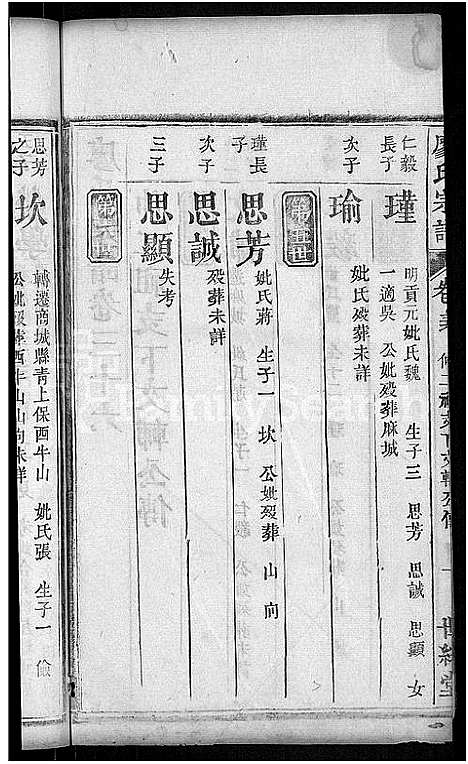 廖氏宗譜
世綵堂
仁毅長子 瑾 明貢元妣氏魏 生子三 思芳 思誠 思顯 女
一適吳 公妣殁葬麻城
次子 瑜 妣氏殁葬未詳
第五世
瑾長子 思芳 妣氏蔣 生子一 坎 公妣殁葬 山 向
次子 思誠 殁葬未詳
三子 思顯 失考
第六世
思芳之子 坎 轉遷商城縣青上保西牛山 妣氏張 生子一 儉
公妣殁葬西牛山山向未詳